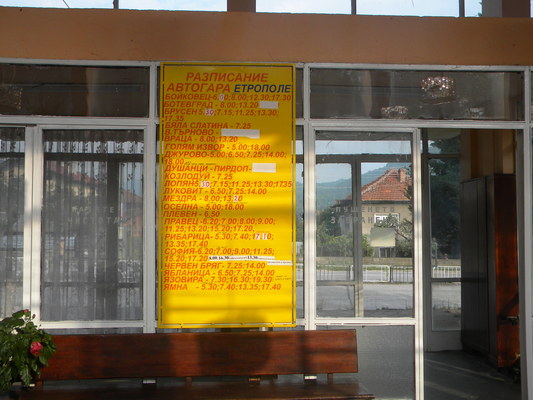 РАЗПИСАНИЕ
АВТОГАРА ЕТРОПОЛЕ
БОЙКОВЕЦ-6. 0;8.00;12.30;17.30
БОТЕВГРАД - 8.00;12.20
БРУСЕН 6.50;7.15;11.25;13.30;
17.35
БЯЛА СЛАТИНА - 7.25
В.ТЪРНОВО -
ВРАЦА - 8.00;13.20
ГОЛЯМ ИЗВОР - 5.00;18.00
ДЖУРОВО-5.00;6.50;7.25;14.00;
18.00
ДУШАНЦИ -ПИРДОП-
КОЗЛОДУЙ - 7.25
ЛОПЯН5. 0;7.15;11.25;13.30;1735
ЛУКОВИТ - 6.50;7.25;14.00
МЕЗДРА - 8.00;13.20
ОСЕЛНА - 5.00;18.00
ПЛЕВЕН - 6.50
ПРАВЕЦ-6.20;7.00;8.00;9.00;
11.25;13.20;15.20;17.20;
РИБАРИЦА- 5.30;7.40;17.10;
13.35;17.40
СОФИЯ-6.20;7.00;9.00;11.25;
15.20;17.20
ЧЕРВЕН БРЯГ - 7.25;14.00
ЯБЛАНИЦА - 6.50;7.25;14.00
ЯЗОВИРА - 7.30;16.30;19.30
ЯМНА - 5.30;7.40;13.35;17.40